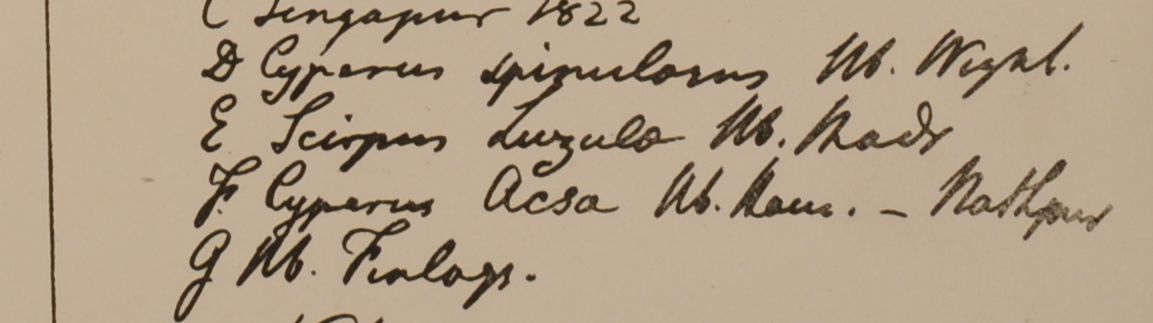 C Singapur 1822
D Cyperus spinulosus Hb. Wight.
E Scirpus Luzula Hb. Madr
F. Cyperus Acsa Hb. Ham. - Nathpur
G Hb. Finlays.